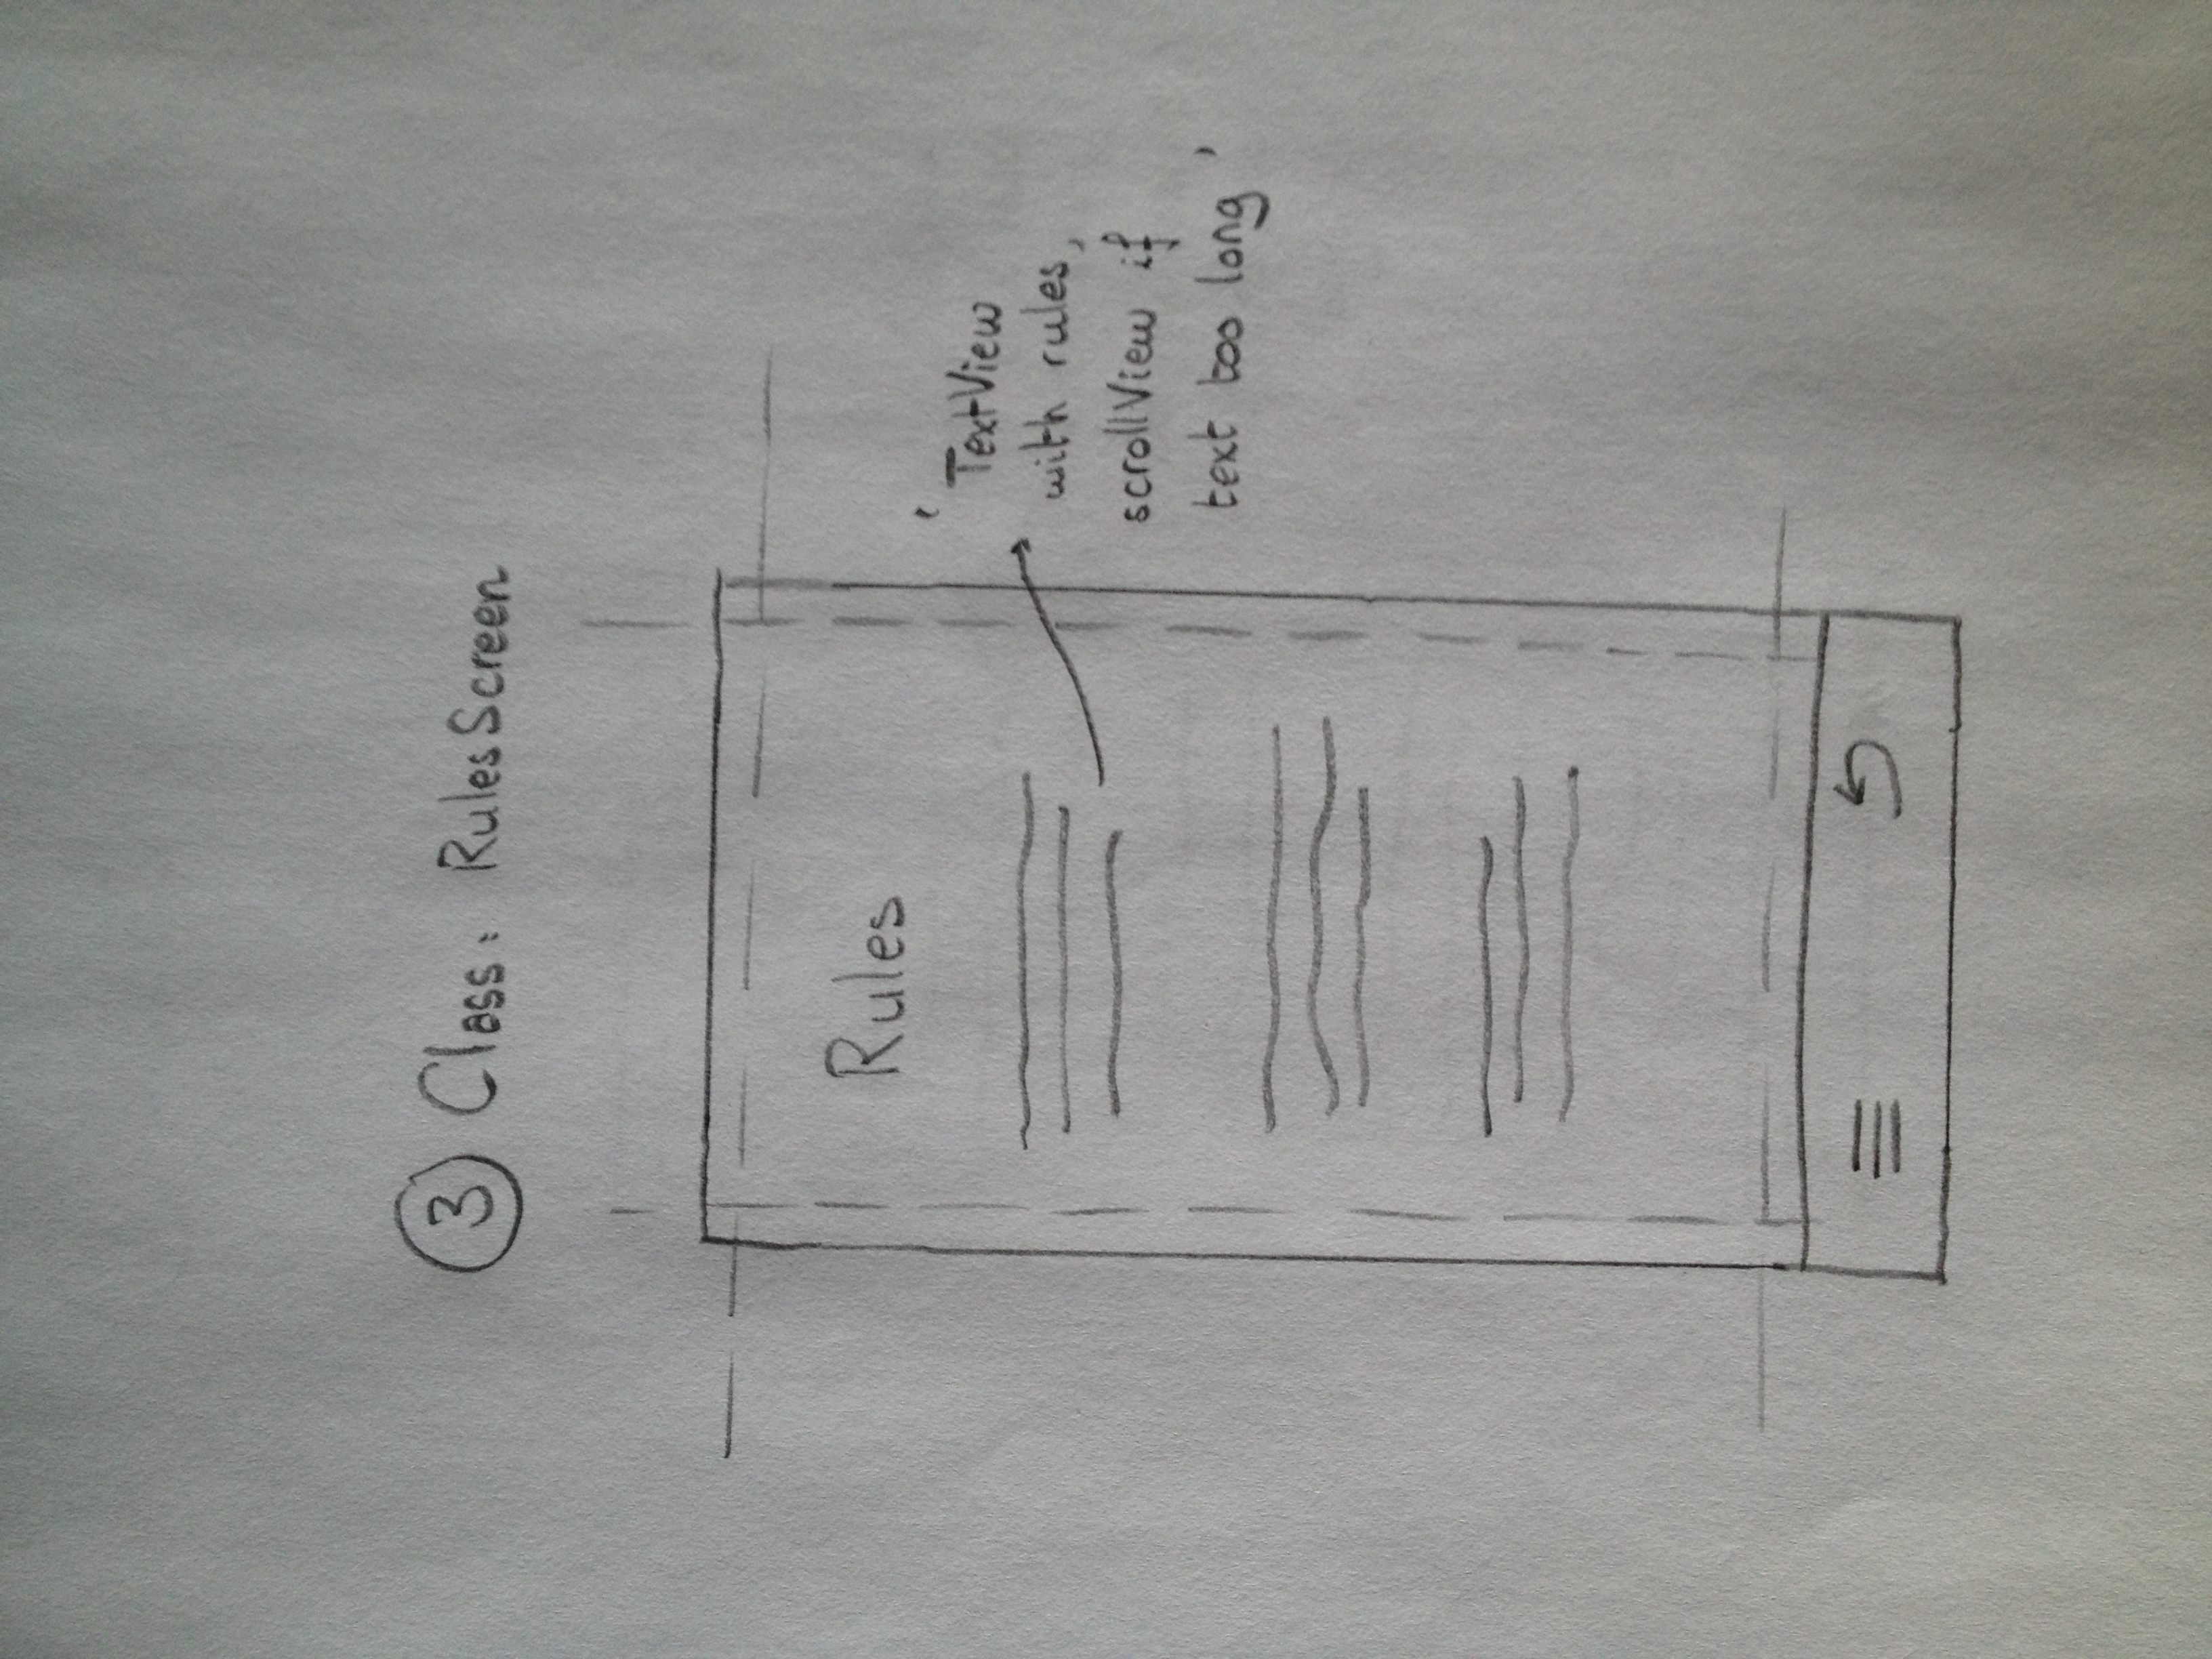 3 Class: RulesScreen
Rules
' TextView
with rules,
scrollView if
text too long '